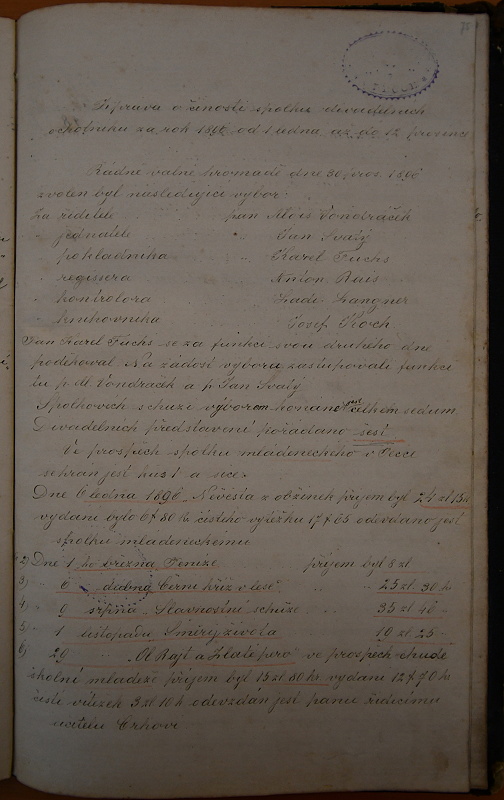 Zpráva o činosti spolku divadelních
ochotníku za rok 1896 od 1 ledna až do 12 prosince
Řádné valné hromadě dne 30 pros. 1896
zvolen byl následující výbor:
Za ředitele pan Alois Vondráček
" jednatele " Jan Svatý
" pokladníka " Karel Fuchs
" regissera " Anton Rais
" kontrolora " Ladi. Langner
" knihovníka " Josef Koch
Pan Karel Fuchs se za funkci svou druhého dne
poděkoval. Na žádost výboru zastupovali funkci
tu p. Al. Vondráček a p. Jan Svatý
Spolkových schuzí výborem konáno jest celkem sedum
Divadelních představení pořádáno šest
Ve prospěch spolku mladeneckého v
sehrán jest kus 1 a sice
Dne 6 ledna 1896 Nevěsta z obžinek příjem byl 24 zl 45 k
vydání bylo 6 zl 80 kr čistého výtěžku 17 zl 65 odevzdáno jest
spolku mládeneckému
2) Dne 1ho března, Peníze příjem byl 8 zl
3) " 6 " dubna Černí kříž v lese " " 25 zl. 30 kr
4) " 9 srpna " Slavnostní schuze " " 35 zl 40 "
5) " 1 listopadu Směry života " 10 zl 25 "
6) " 29 " " At Rajt a Zlaté pero" ve prospěch chudé
školní mládeže příjem byl 15 zl 80 kr vydání 12 zl 70 kr
čistí vítězek 3 zl 10 k odevzdán jest panu řídícímu
učitelu Erhovi